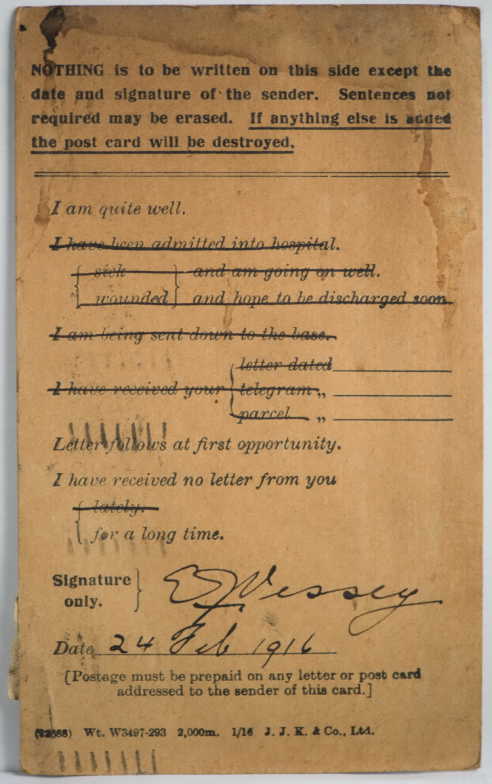 NOTHING is to be written on this side except the
date and signature of the sender. Sentences not
required may be erased. If anything else is added
the post card will be destroyed.
I am quite well.
I have been admitted into hospital.
sick and am going on well.
wounded and hope to be discharged soon.
I am being sent down to the base.
letter dated
I have received your telegram „
parcel „
Letter follows at first opportunity.
I have received no letter from you
lately.
for a long time.
Signature
only.
E J Vessey
Date 24 Feb 1916
[Postage must be prepaid on any letter or post card
addressed to the sender of this card.]
Wt. W3497-293 2,000m. 1/16 J. J. K. & Co., Ltd.